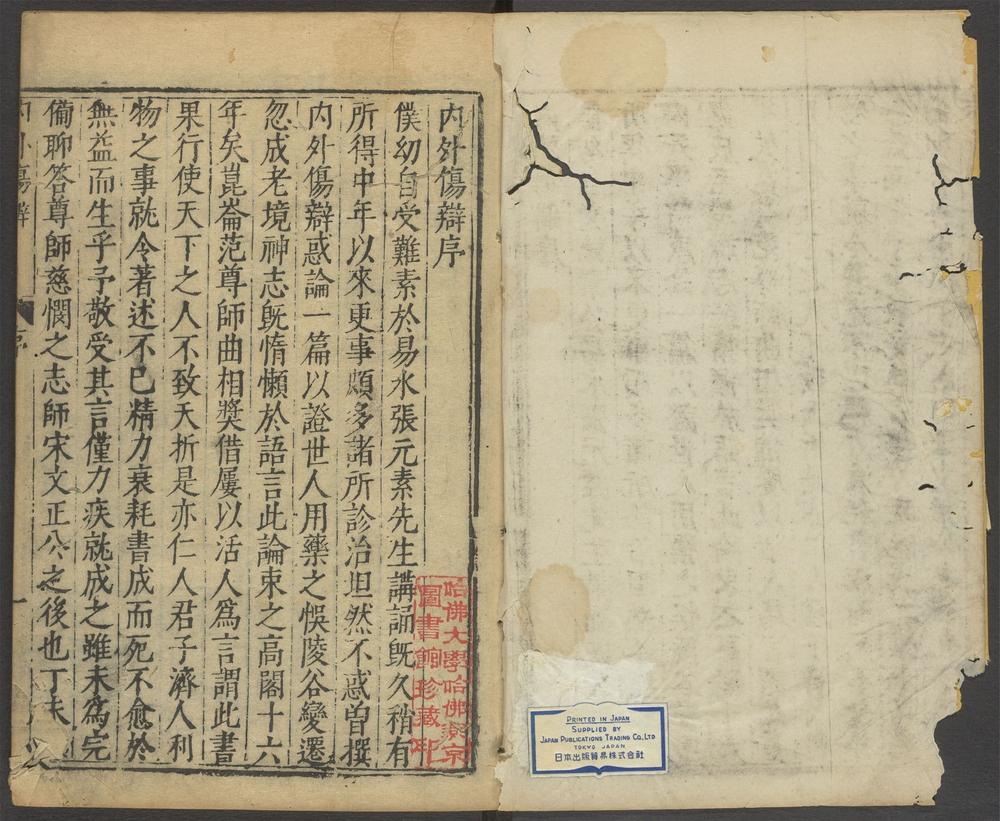 内外傷辯序
僕幼自受難素於易水張元素先生講誦旣久稍有
所得中年以來更事頗多諸所診治坦然不惑曽撰
内外傷辯惑論一篇以證世人用藥之悞陵谷變遷
忽成老境神志旣惰懶於語言此論束之高閣十六
年矣崑崙范尊師曲相奬借屢以活人爲言謂此書
果行使天下之人不致夭折是亦仁人君子濟人利
物之事就令著述不已精力衰耗書成而死不愈於
無益而生乎予敬受其言僅力疾就成之雖未爲完
備聊答尊師慈憫之志師宋文正公之後也丁未
内外傷辯 序 一
哈佛大學哈佛燕京
圖書館珍藏印
PRINTED IN JAPAN
SUPPLIED BY
JAPAN PUBLICATIONS TRADING CO., LTD
TOKYO JAPAN
日本出版貿易株式会社